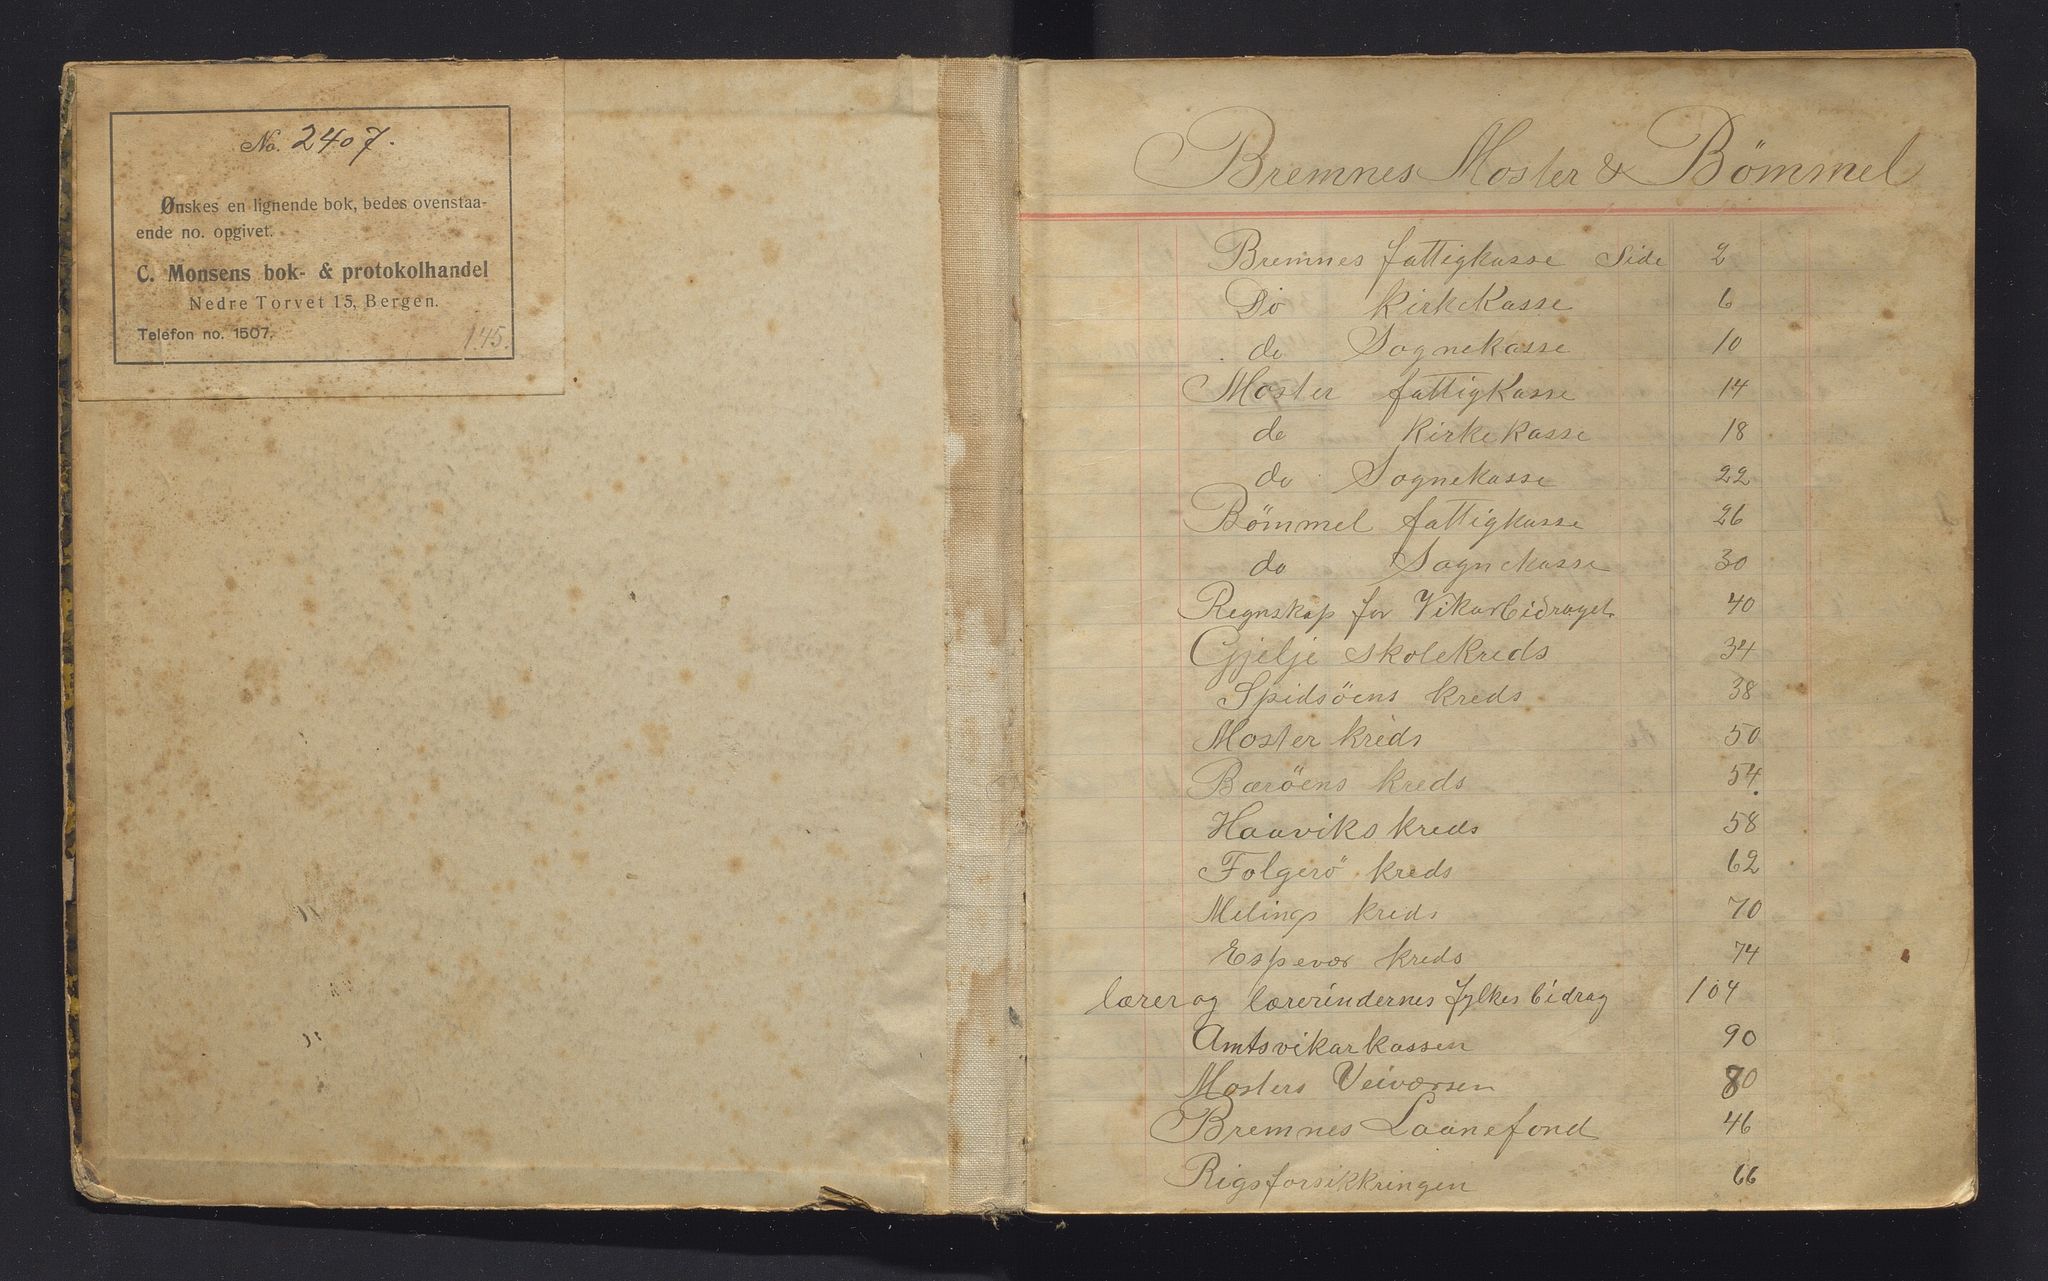 No. 2407.
Ønskes en lignende bok, bedes ovenstaa-
ende no. opgivet.
C. Monsens bok- & protokolhandel
Nedre Torvet 15, Bergen.
Telefon no. 1507.
1.45.
Bremnes Moster & Bömmel
Bremnes fattigkasse Side 2
Do Kirkekasse 6
do Sognekasse 10
Moster fattigkasse 14
do Kirkekasse 18
do Sognekasse 22
Bömmel fattigkasse 26
do Sognekasse 30
Regnskap for Vikarbidraget 40
Gjelje skolekreds 34
Spidsöens kreds 38
Moster kreds 50
Bæröens kreds 54.
Haaviks kreds 58
Folgerö kreds 62
Melings kreds 70
Espevær kreds 74
lærer og lærerindernes fylkesbidrag 104
Amtsvikarkassen 90
Mosters Veivæsen 80
Bremnes Laanefond 46
Rigsforsikkringen 66